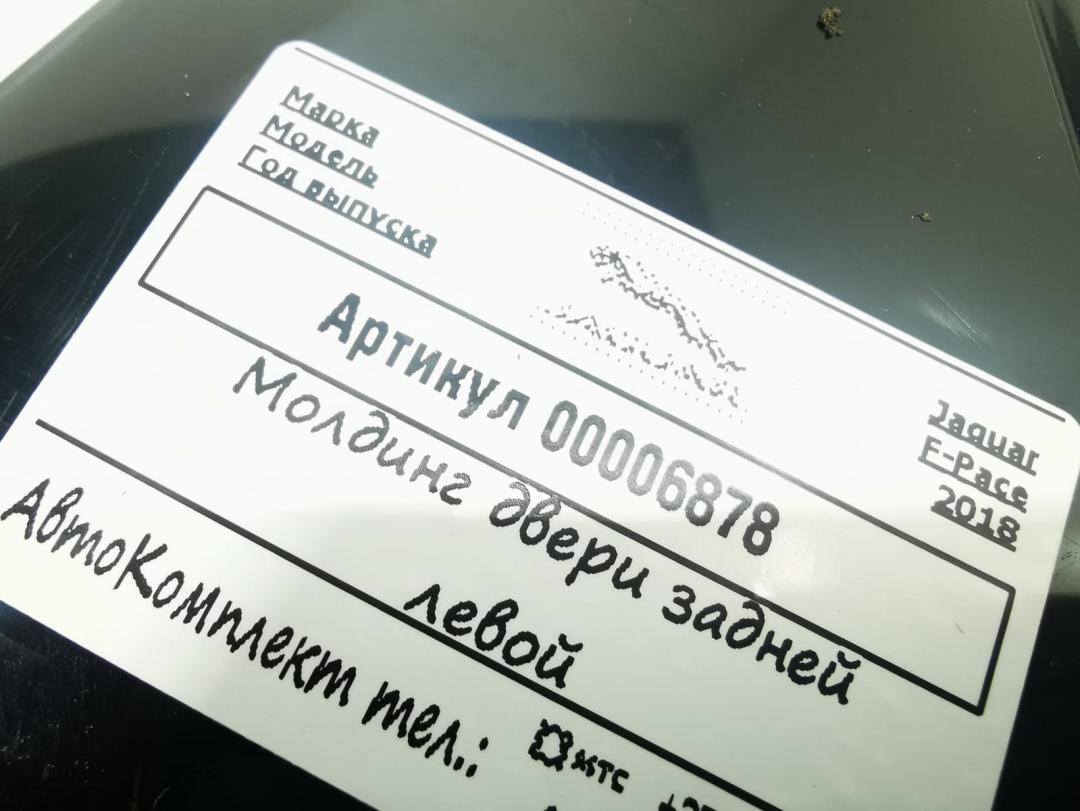 Марка
Jaguar
Модель
F-Pace
Год выпуска
2018
Артикул 00006878
Молдинг двери задней
левой
АвтоКомплект тел.:
мтс